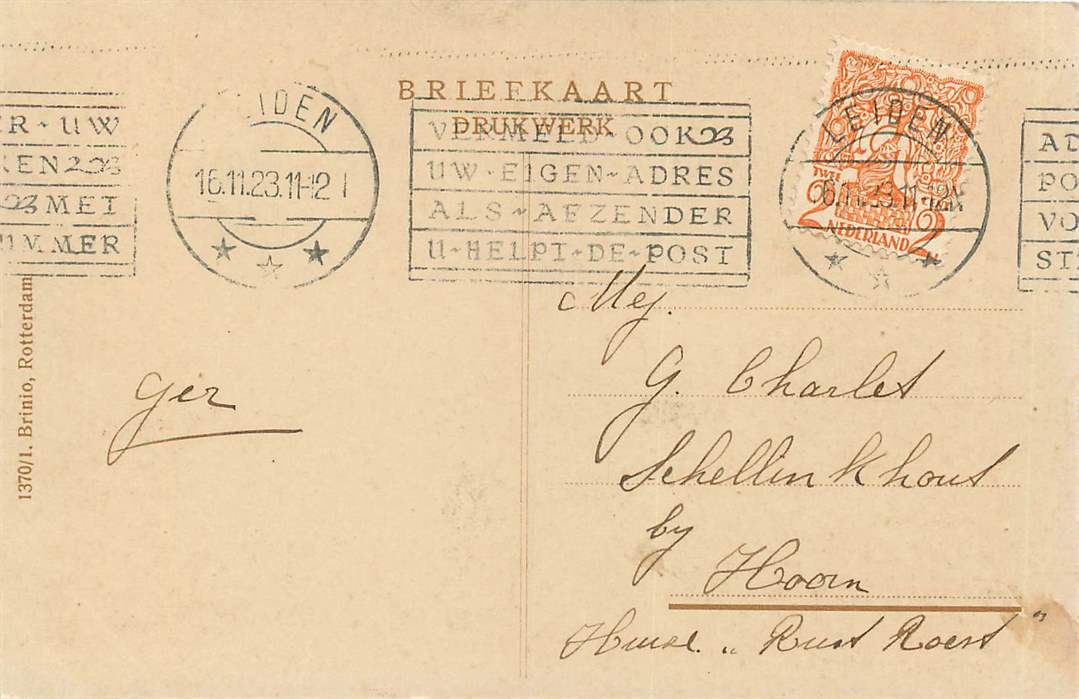 BRIEFKAART
DRUKWERK
ER - UW
KEN
MET
NUMMER
LEIDEN
16.11.23.11-12 1
VERMELD - OOK
UW - EIGEN - ADRES
ALS - AFZENDER
U - HELPT - DE - POST
LEIDEN
16.11.23.11-12
TWEE
2 2
NEDERLAND
AD
PO
VO
ST
1370/1. Brinio, Rotterdam
Ger
Mej.
G. Charlet
Schellinkhout
by
Hoorn
Huize „ Rust Roest "